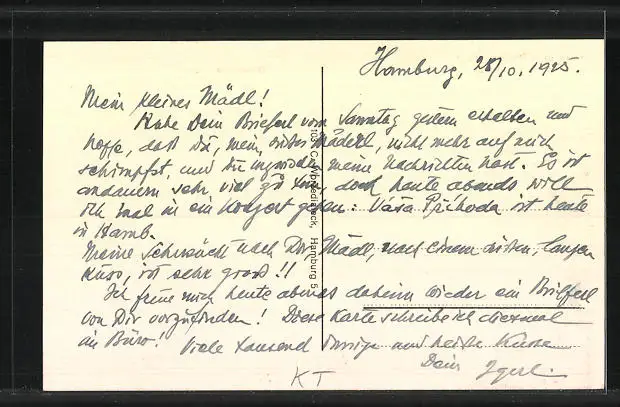 Hamburg, 28/10. 1925.
Mein kleines Mädl!
Habe Dein Brieferl vom Sonntag gestern erhalten und
hoffe, daß Du, mein süßes Mäderl, nicht mehr auf mich
schimpfst, und Du inzwischen meine Nachrichten hast. Es ist
andauernd sehr viel zu tun, doch heute abends will
ich mal in ein Konzert gehen: Váša Příhoda ist heute
in Hamb.
Meine Sehnsucht nach Dir, Mädl, nach einem süßen, langen
Kuss, ist sehr gross!!
Ich freue mich heute abends daheim wieder ein Brieferl
von Dir vorzufinden! Diese Karte schreibe ich diesmal
im Büro! Viele tausend innige und heiße Küsse
Dein Igerl.
KT
Hamburg 5